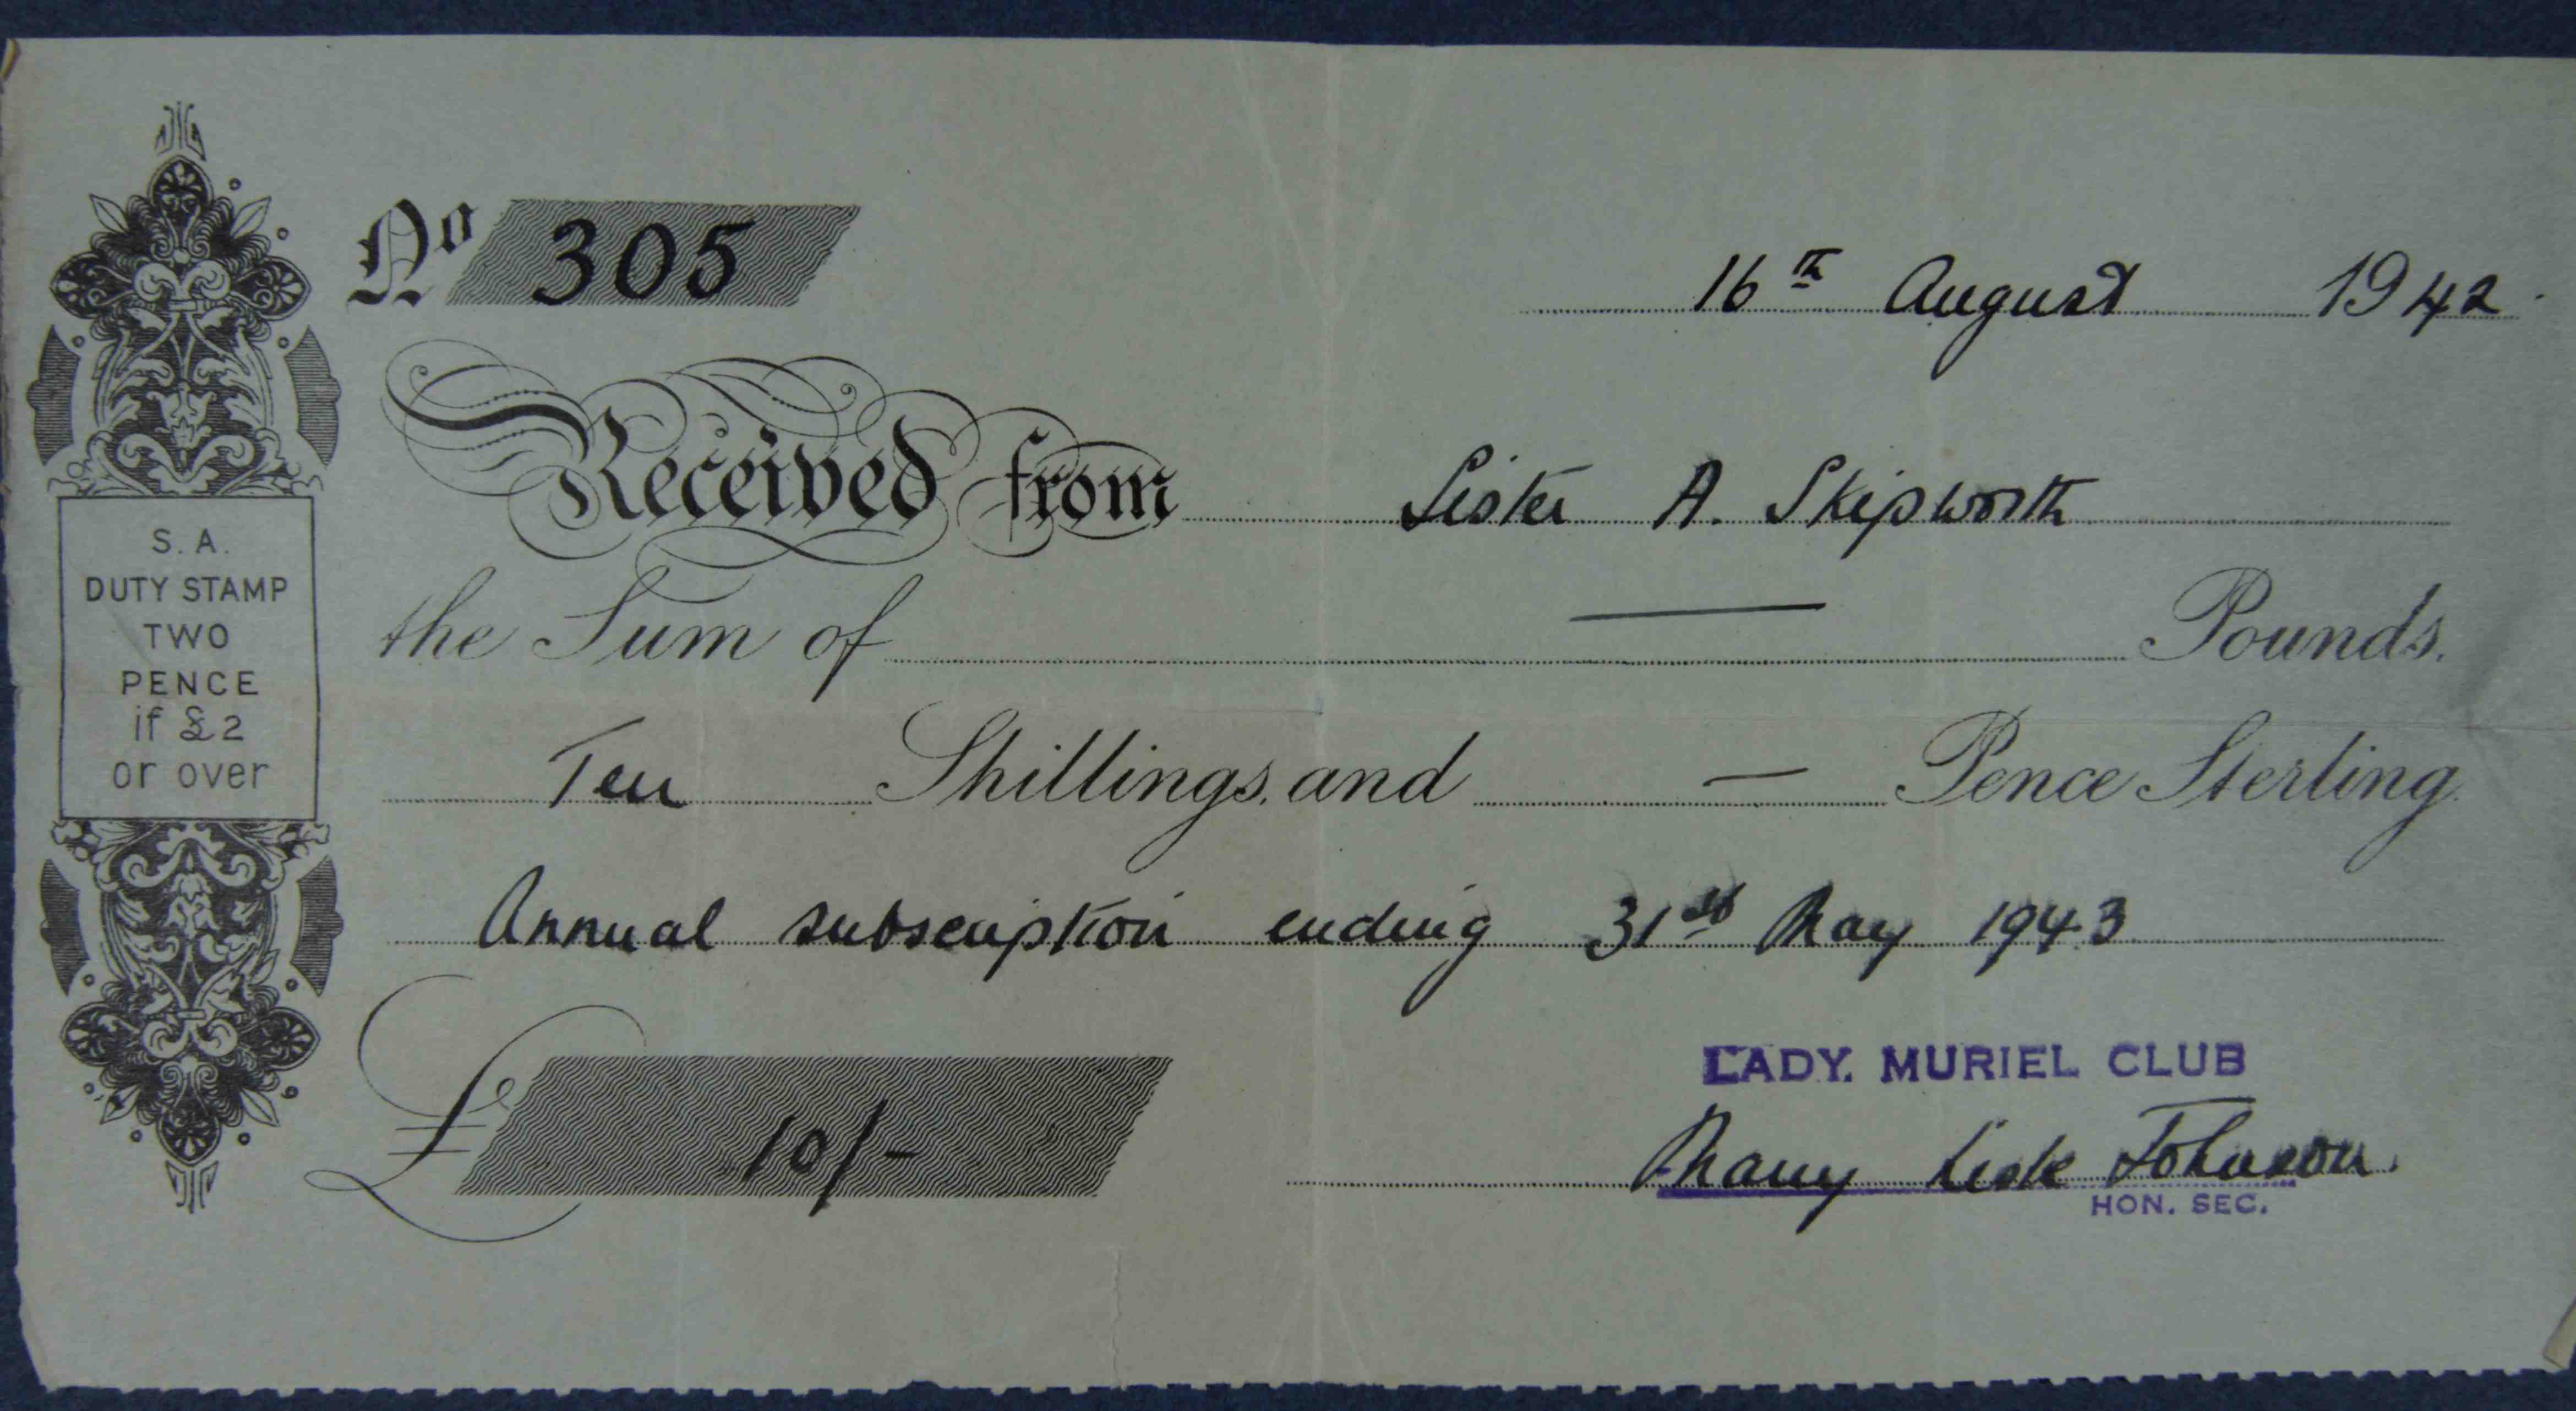 Nº 305
16th August 1942.
Received from Sister A. Skipworth
the Sum of — Pounds.
Ten Shillings, and — Pence Sterling.
Annual subscription ending 31st May 1943
£ 10/-
LADY. MURIEL CLUB
Mary Johnson.
HON. SEC.
S. A.
DUTY STAMP
TWO
PENCE
if £2
or over